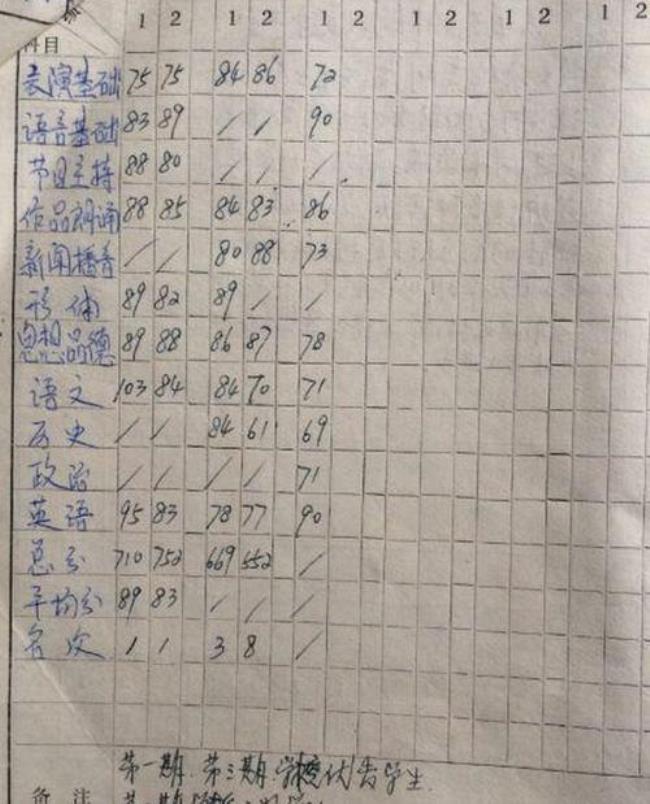 1 2 1 2 1 2 1 2 1 2 1 2
科目
表演基础 75 75 84 86 72
语言基础 83 89 / / 90
节目主持 88 80 / / /
作品朗诵 88 85 84 83 86
新闻播音 / / 80 88 73
形体 89 82 89 / /
思想品德 89 88 86 87 78
语文 103 84 84 70 71
历史 / / 84 61 69
政治 / / / / 71
英语 95 83 78 77 90
总分 710 752 669 552 /
平均分 89 83 / / /
名次 1 1 3 8 /
第一期.第三期.学校优秀学生.
备注